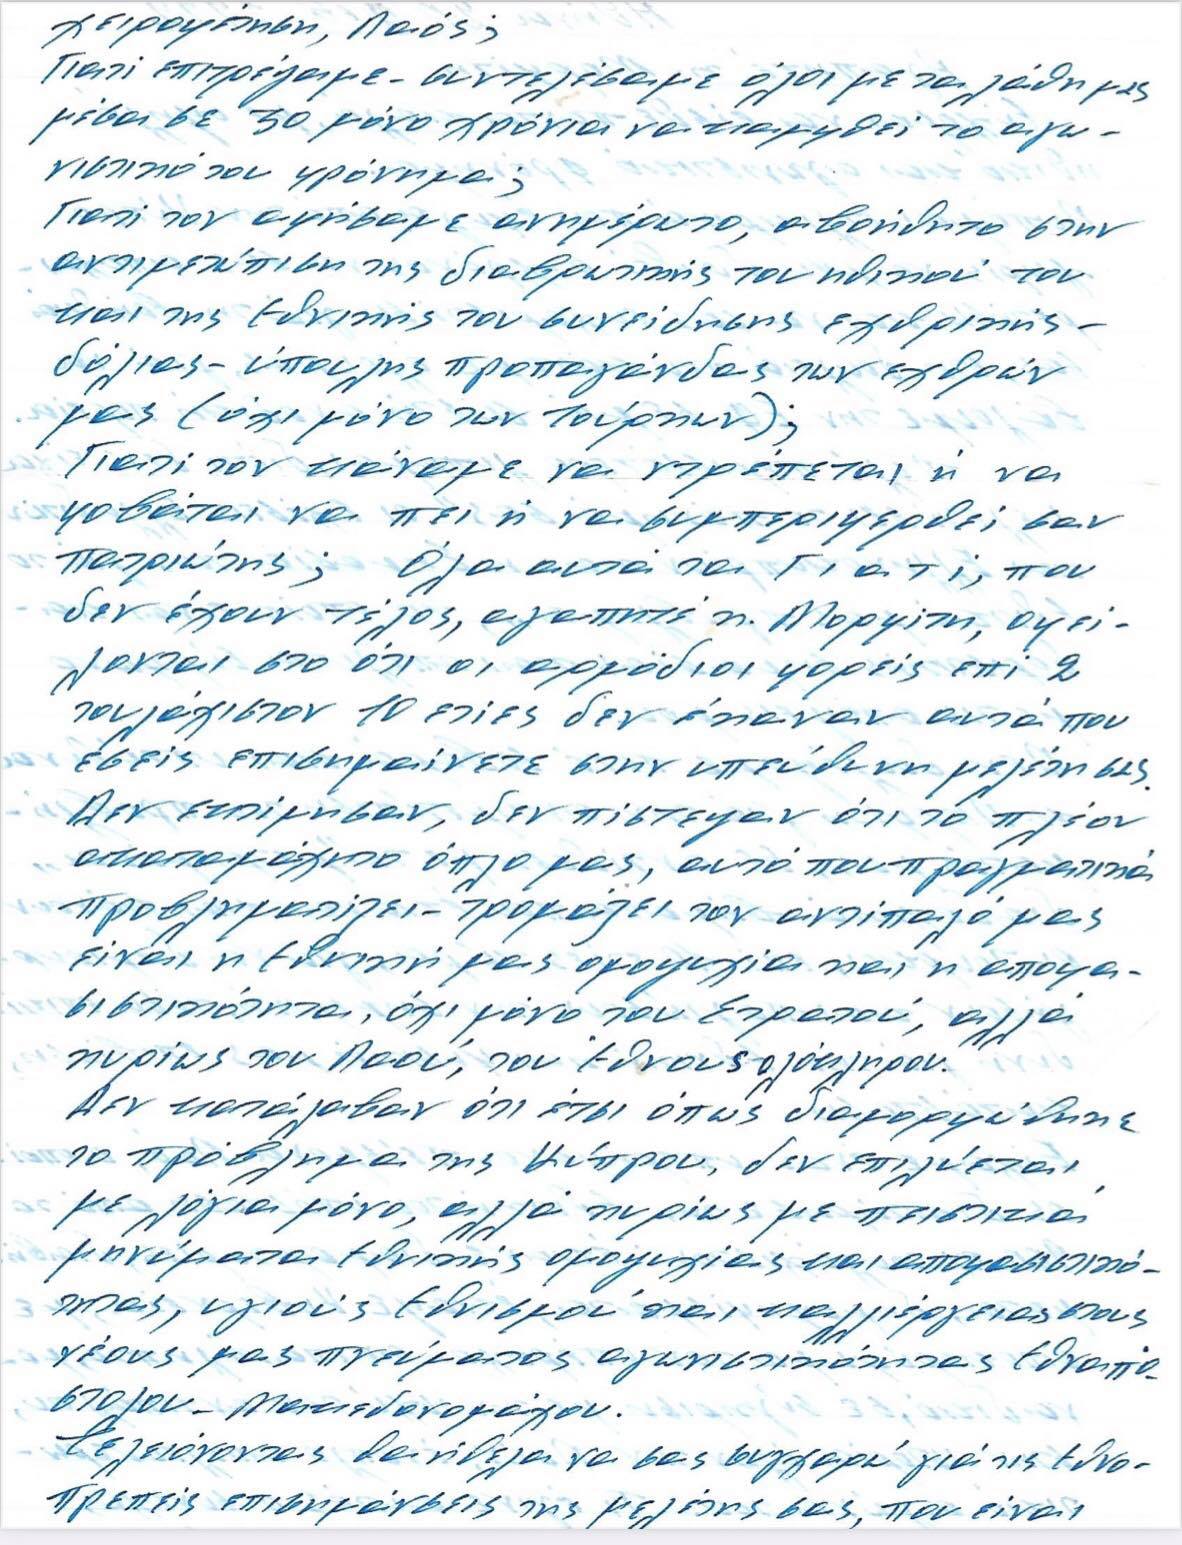 χειραγώγηση, Λαός;
Γιατί επιτρέψαμε - συντελέσαμε όλοι με τα λάθη μας
μέσα σε 30 μόνο χρόνια να καμφθεί το αγω-
νιστικό του φρόνημα;
Γιατί τον αφήσαμε ανημέρωτο, αβοήθητο στην
αντιμετώπιση της διαβρωτικής του ηθικού του
και της εθνικής του συνείδησης εχθρικής -
δόλιας - ύπουλης προπαγάνδας των εχθρών
μας (όχι μόνο των Τούρκων);
Γιατί τον κάναμε να ντρέπεται ή να
φοβάται να πει ή να συμπεριφερθεί σαν
πατριώτης; Όλα αυτά τα Γιατί, που
δεν έχουν τέλος, αγαπητέ κ. Μορφίτη, οφεί-
λονται στο ότι οι αρμόδιοι φορείς επί 2
τουλάχιστον 10 ετίες δεν έκαναν αυτά που
εσείς επισημαίνετε στην υπεύθυνη μελέτη σας.
Δεν εκτίμησαν, δεν πίστεψαν ότι το πλέον
ακαταμάχητο όπλο μας, αυτό που πραγματικά
προβληματίζει - τρομάζει τον αντίπαλό μας
είναι η εθνική μας ομοψυχία και η αποφα-
σιστικότητα, όχι μόνο του Στρατού, αλλά
κυρίως του Λαού, του Έθνους ολόκληρου.
Δεν κατάλαβαν ότι έτσι όπως διαμορφώθηκε
το πρόβλημα της Κύπρου, δεν επιλύεται
με λόγια μόνο, αλλά κυρίως με πειστικά
μηνύματα εθνικής ομοψυχίας και αποφασιστικό-
τητας, υγιούς εθνισμού και καλλιέργειας στους
νέους μας πνεύματος αγωνιστικότητας εθναπο-
στόλου - Μακεδονομάχου.
Τελειώνοντας θα ήθελα να σας συγχαρώ γιά τις εθνο-
πρεπείς επισημάνσεις της μελέτης σας, που είναι